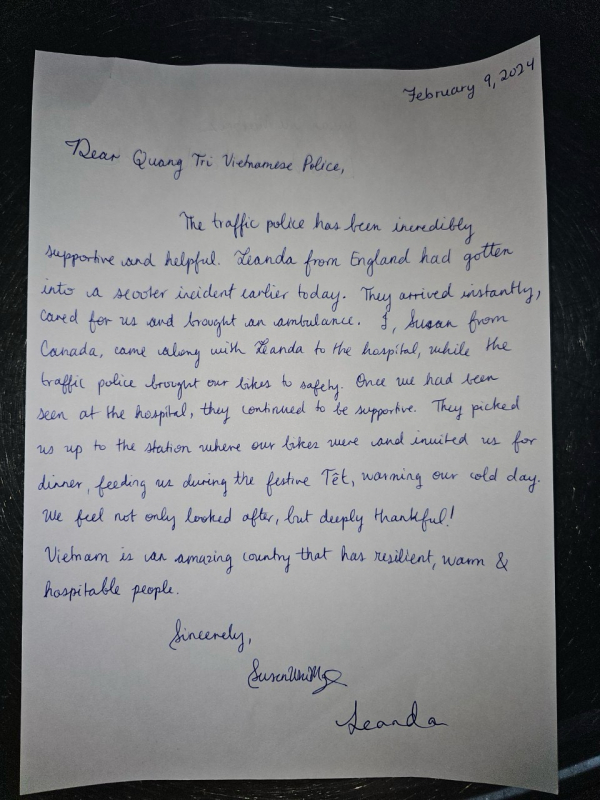 February 9, 2024
Dear Quang Tri Vietnamese Police,
The traffic police has been incredibly
supportive and helpful. Leanda from England had gotten
into a scooter incident earlier today. They arrived instantly,
cared for us and brought an ambulance. I, Susan from
Canada, came along with Leanda to the hospital, while the
traffic police brought our bikes to safety. Once we had been
seen at the hospital, they continued to be supportive. They picked
us up to the station where our bikes were and invited us for
dinner, feeding us during the festive Tết, warming our cold day.
We feel not only looked after, but deeply thankful!
Vietnam is an amazing country that has resilient, warm &
hospitable people.
Sincerely,
Leanda